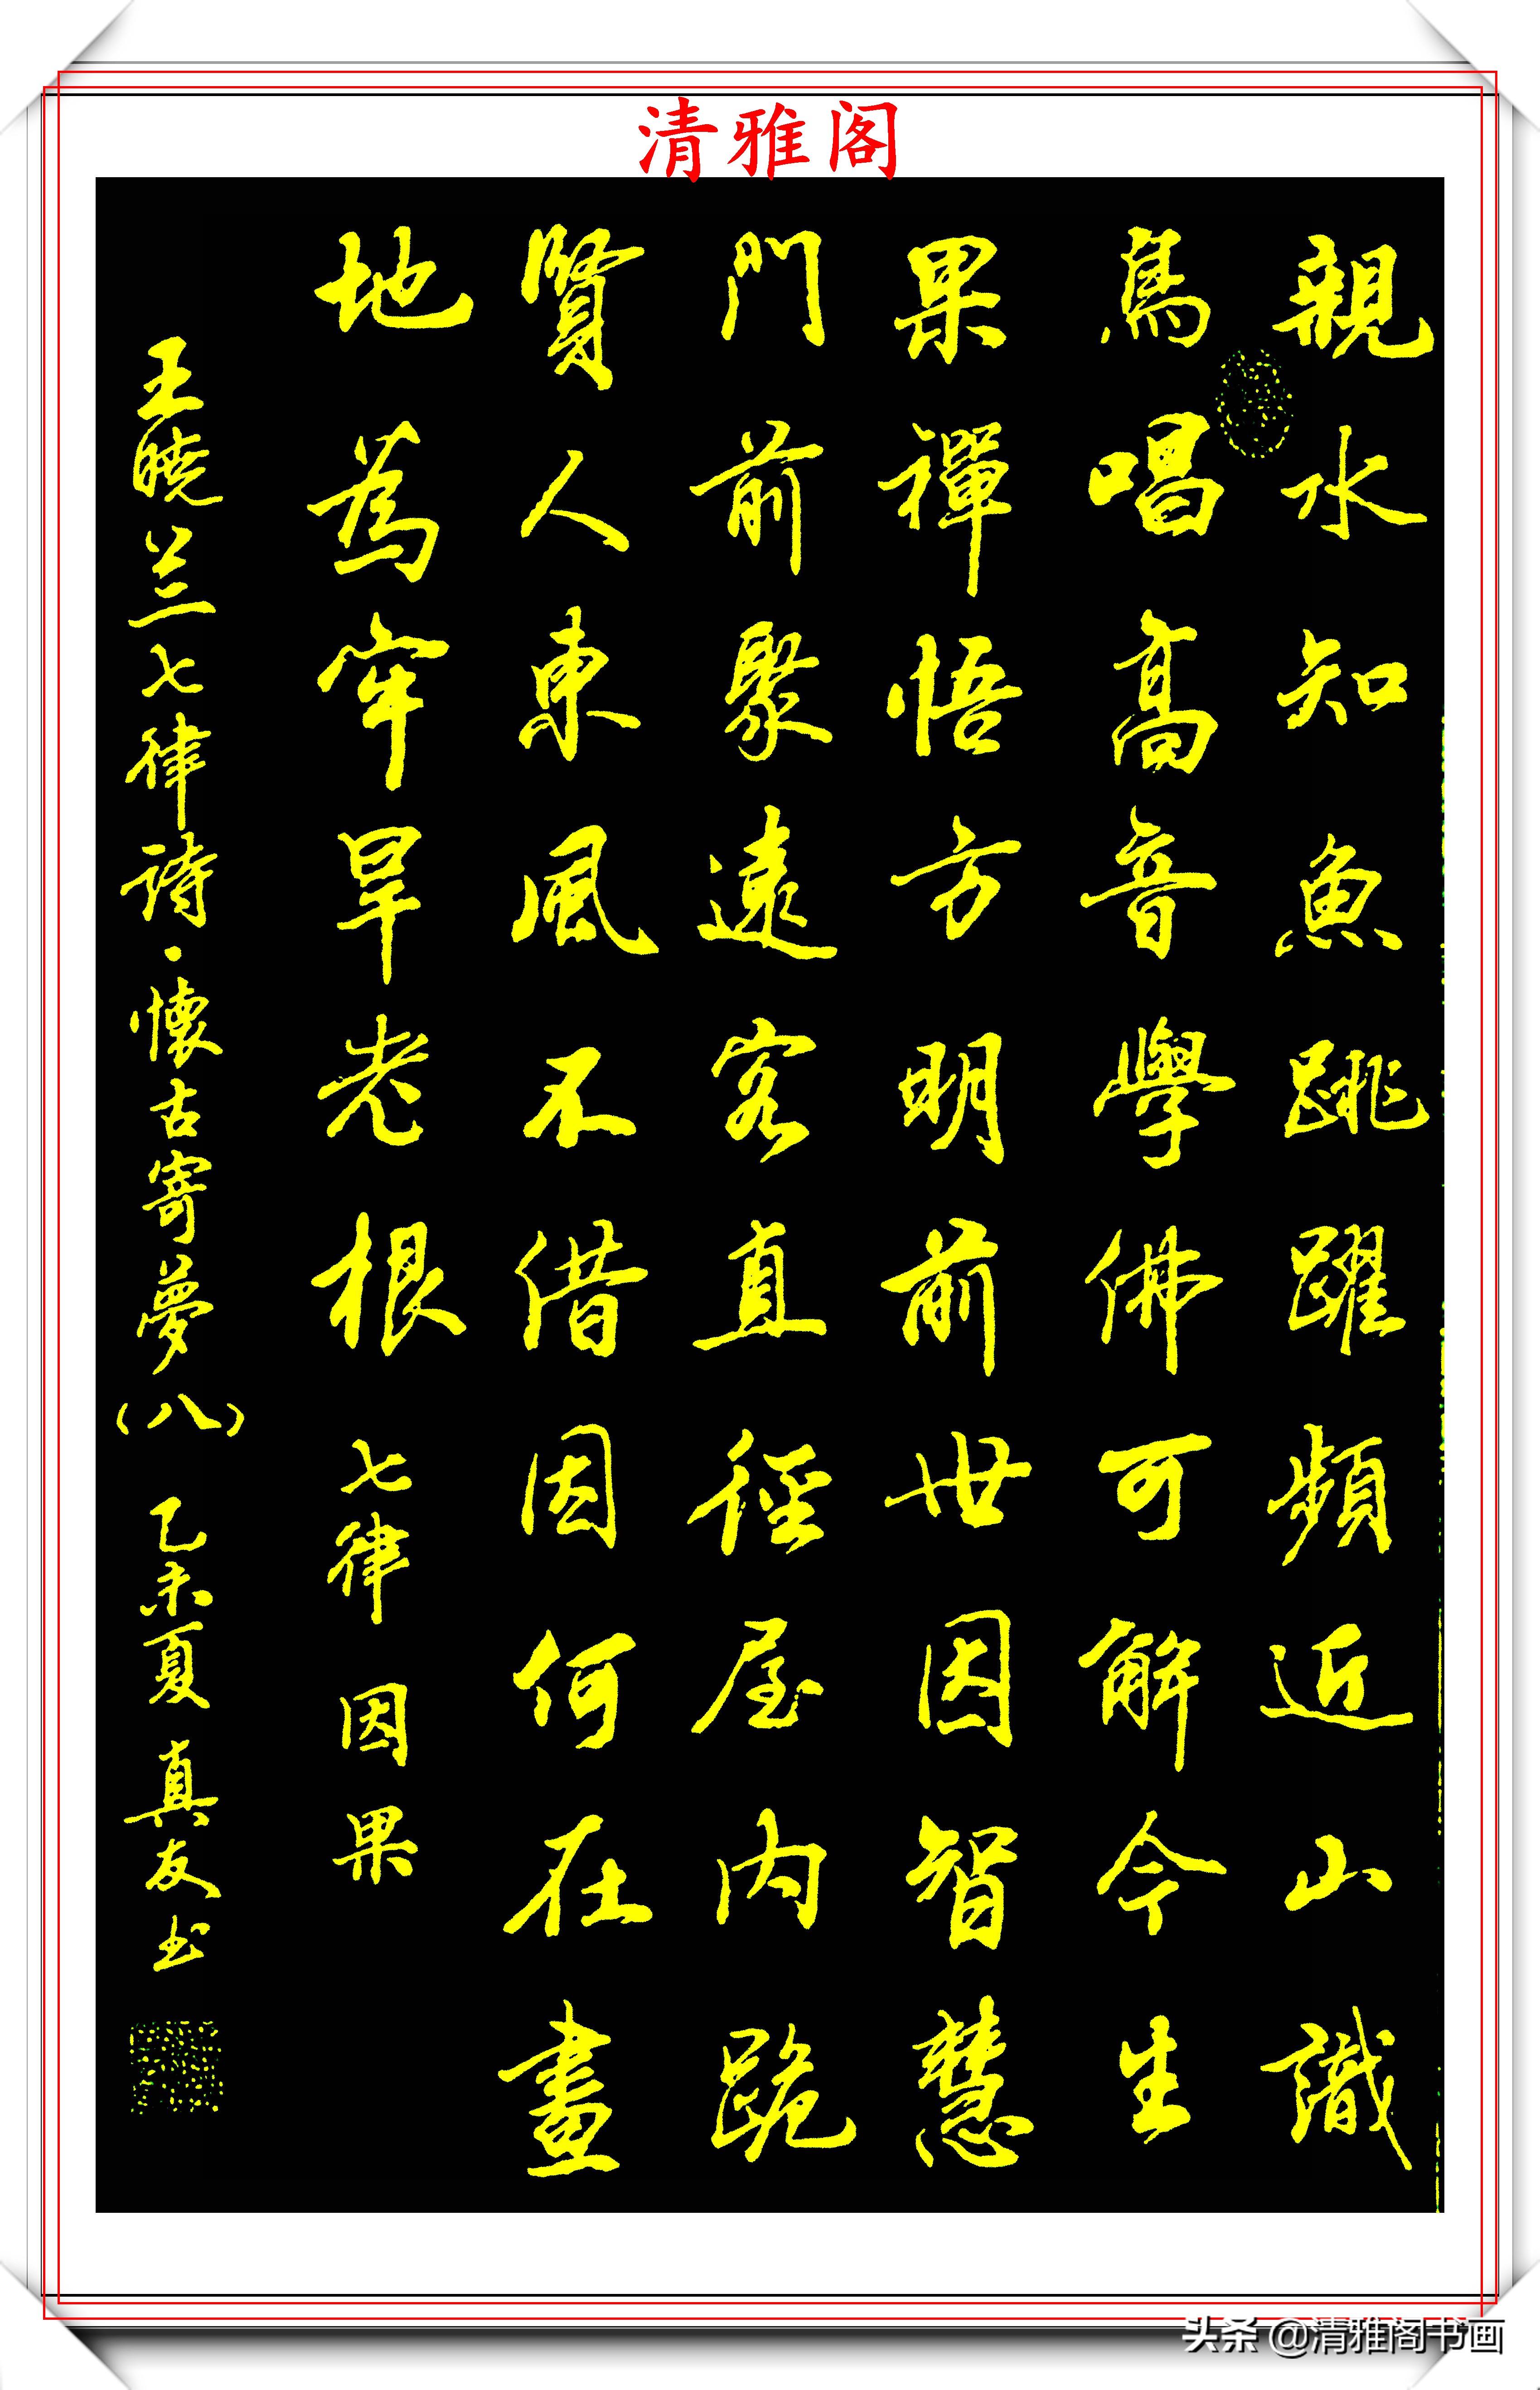 清雅阁
親水知魚跳躍頻近山識
鳥唱高音學佛可解今生
果禪悟方明前世因智慧
門前聚遠客直徑屋内跪
賢人東風不借因何在畫
地為牢旱老根 七律 因果
王曉兰七律詩·懷古寄夢(八) 乙未夏 真友书
头条 @清雅阁书画